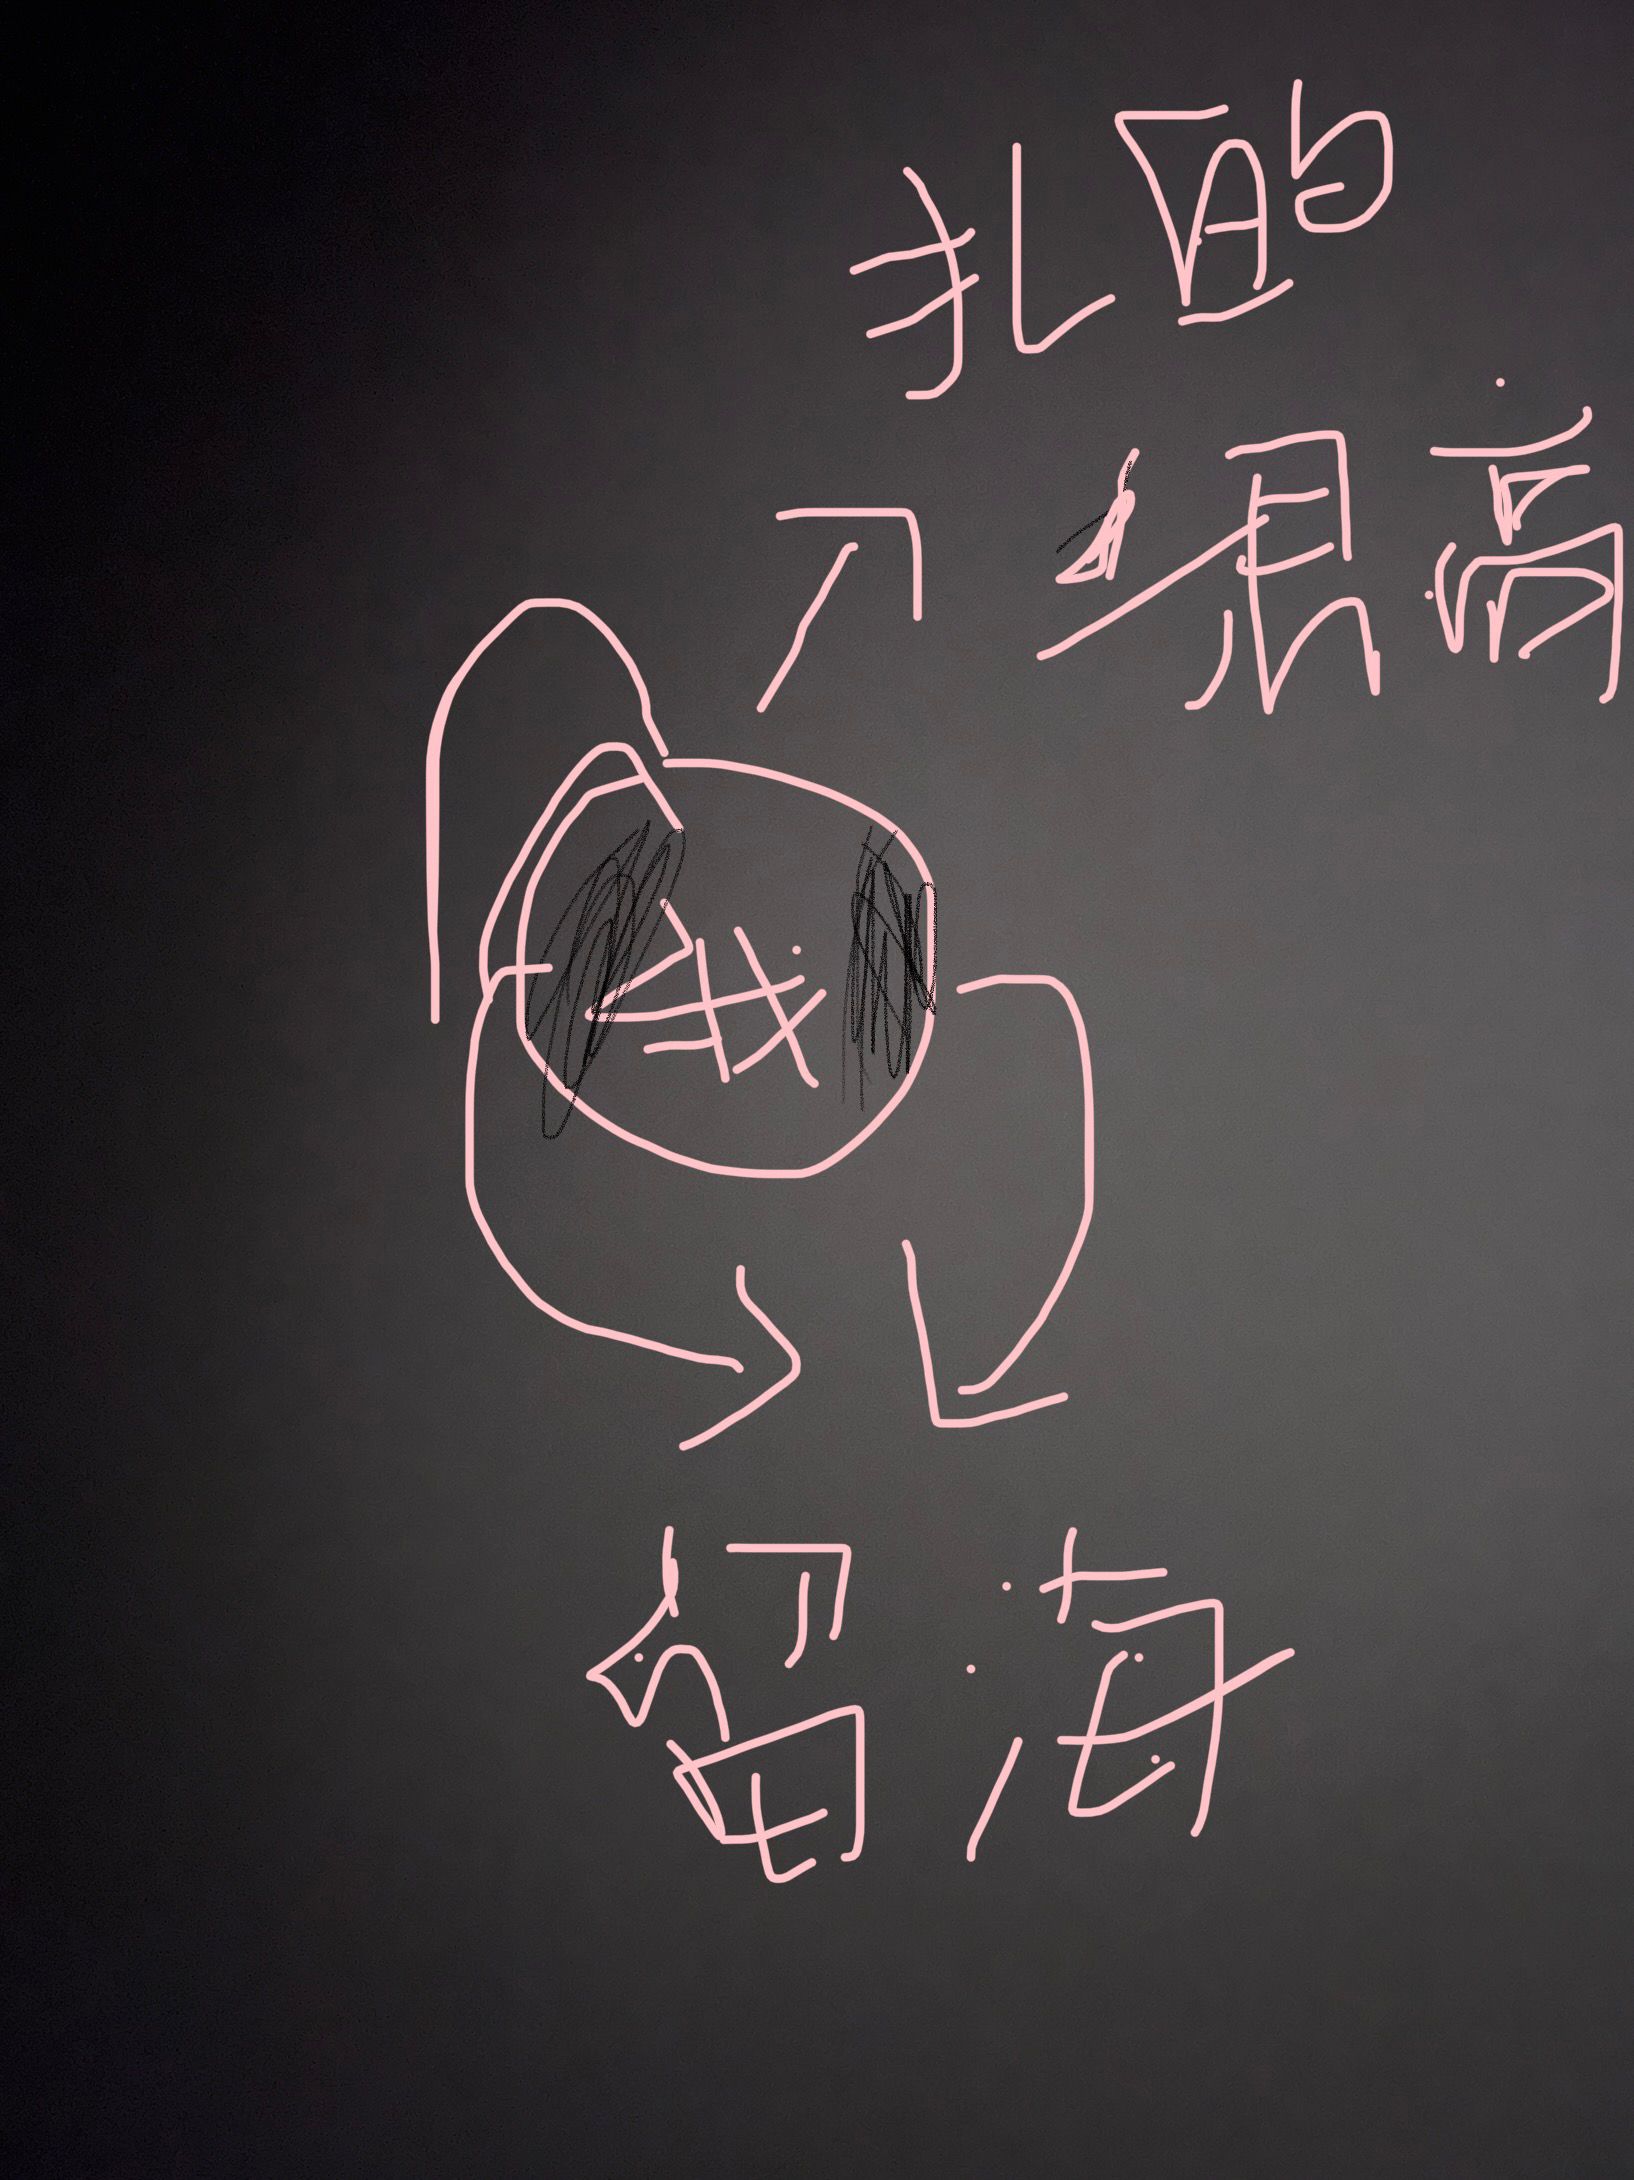 扎的
很高
我
留海